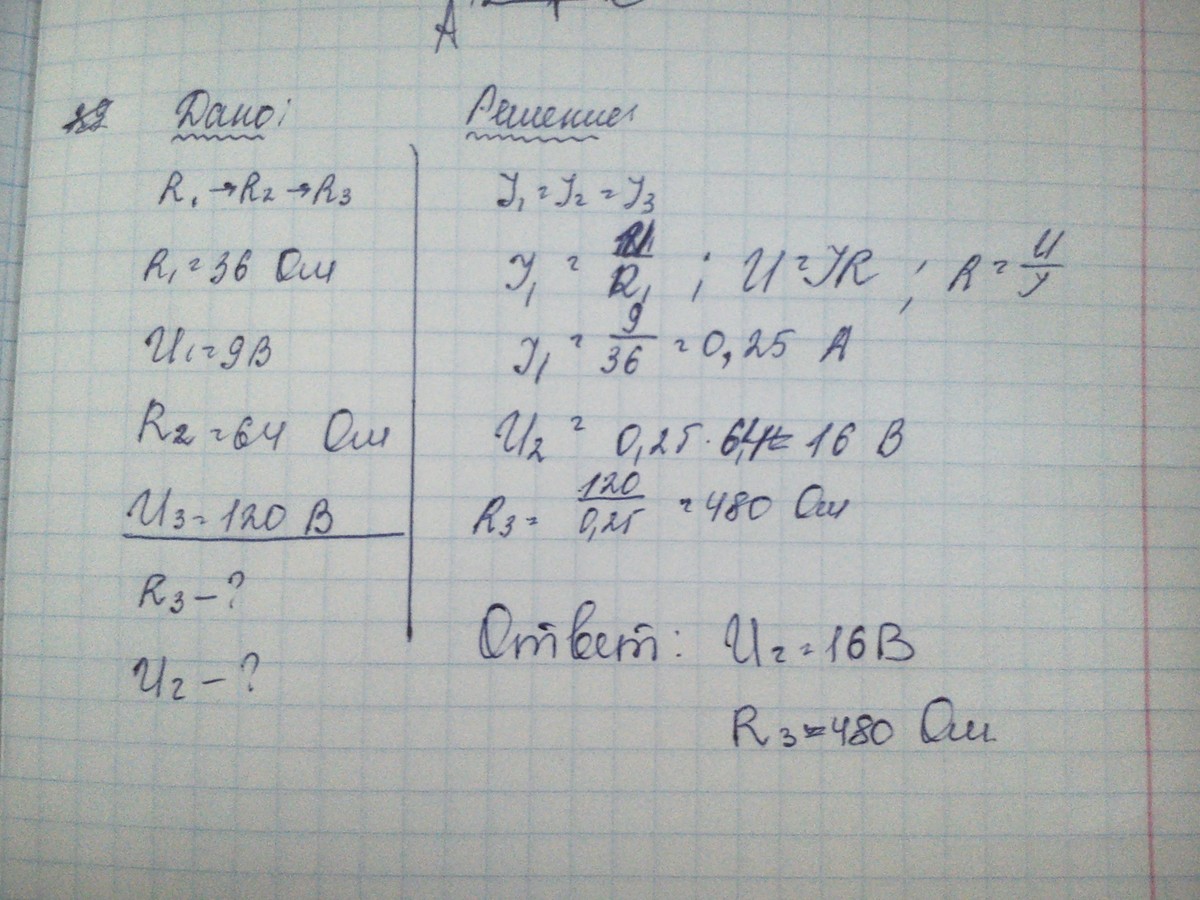 A
Дано:
R₁ → R₂ → R₃
R₁ = 36 Ом
U₁ = 9 В
R₂ = 64 Ом
U₃ = 120 В
R₃ - ?
U₂ - ?
Решение:
I₁ = I₂ = I₃
I₁ = U₁/R₁ ; U = IR ; R = U/I
I₁ = 9/36 = 0,25 А
U₂ = 0,25 · 64 = 16 В
R₃ = 120/0,25 = 480 Ом
Ответ: U₂ = 16 В
R₃ = 480 Ом